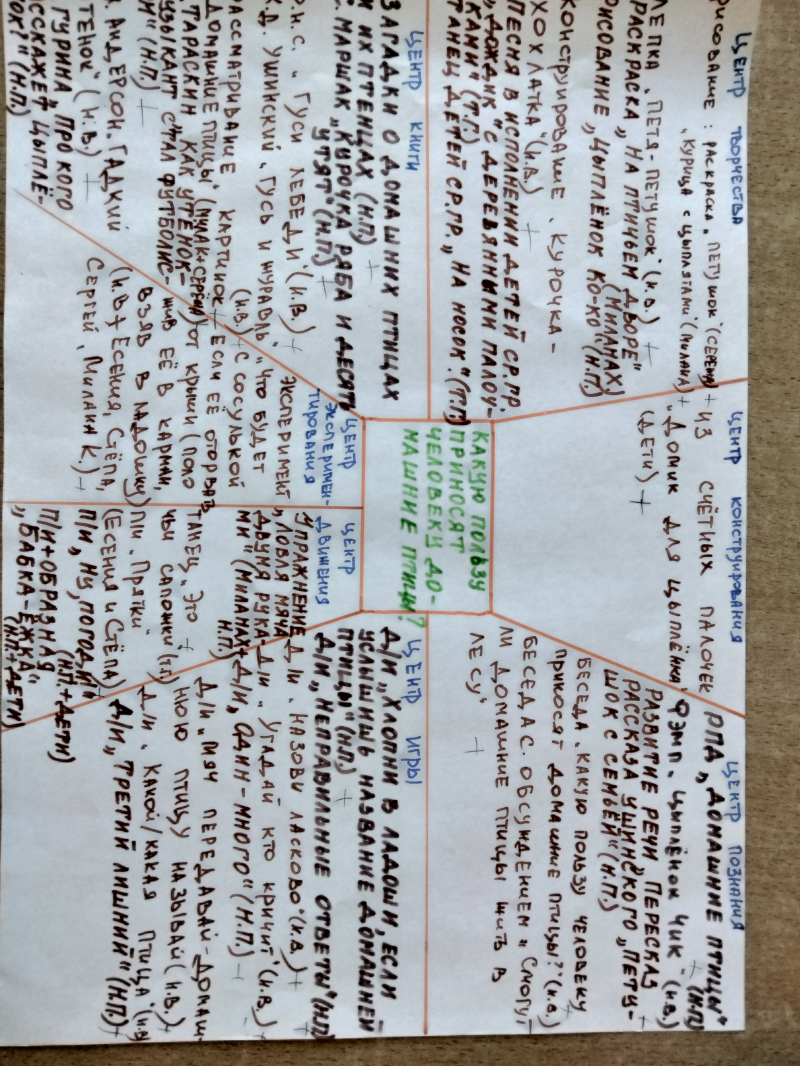 ЦЕНТР ТВОРЧЕСТВА
РИСОВАНИЕ: РАСКРАСКА „ПЕТУШОК" (СЕРЁЖА) +
„КУРИЦА С ЦЫПЛЯТАМИ" (МИЛАНА) +
ЛЕПКА „ПЕТЯ-ПЕТУШОК" (И.В.) +
РАСКРАСКА „НА ПТИЧЬЕМ ДВОРЕ"
(МИЛАНАХ)
РИСОВАНИЕ „ЦЫПЛЁНОК КО-КО" (Н.П.)
КОНСТРУИРОВАНИЕ „КУРОЧКА-
ХОХЛАТКА" (И.В.) +
ПЕСНЯ В ИСПОЛНЕНИИ ДЕТЕЙ СР.ГР.
„ДОЖДИК" С ДЕРЕВЯННЫМИ ПАЛОЧ-
КАМИ" (Т.Г.)
ТАНЕЦ ДЕТЕЙ СР.ГР. „НА НОСОК". (Т.Г.)
ЦЕНТР КОНСТРУИРОВАНИЯ
ИЗ СЧЁТНЫХ ПАЛОЧЕК
„ДОМИК ДЛЯ ЦЫПЛЁНКА"
(ДЕТИ) +
ЦЕНТР ПОЗНАНИЯ
РПД „ДОМАШНИЕ ПТИЦЫ"
+ (Н.П.)
ФЭМП „ЦЫПЛЁНОК ЧИК" (И.В.)
РАЗВИТИЕ РЕЧИ ПЕРЕСКАЗ +
РАССКАЗА УШИНСКОГО „ПЕТУ-
ШОК С СЕМЬЁЙ" (Н.П.)
БЕСЕДА „КАКУЮ ПОЛЬЗУ ЧЕЛОВЕКУ
ПРИНОСЯТ ДОМАШНИЕ ПТИЦЫ?" (И.В.)
БЕСЕДА С ОБСУЖДЕНИЕМ „СМОГУТ
ЛИ ДОМАШНИЕ ПТИЦЫ ЖИТЬ В
ЛЕСУ" +
КАКУЮ ПОЛЬЗУ
ПРИНОСЯТ
ЧЕЛОВЕКУ ДО-
МАШНИЕ ПТИЦЫ?
ЦЕНТР КНИГИ
ЗАГАДКИ О ДОМАШНИХ ПТИЦАХ
И ИХ ПТЕНЦАХ (Н.П) +
С. МАРШАК „КУРОЧКА РЯБА И ДЕСЯТЬ
УТЯТ" (Н.П) +
Р.Н.С. „ГУСИ ЛЕБЕДИ" (И.В.) +
К.Д. УШИНСКИЙ „ГУСЬ И ЖУРАВЛЬ"
(И.В.) +
РАССМАТРИВАНИЕ КАРТИНОК
„ДОМАШНИЕ ПТИЦЫ" (МИЛАНА К СЕРЁЖА) +
„ТАРАСКИН КАК УТЁНОК-
МУЗЫКАНТ СТАЛ ФУТБОЛИС-
ТОМ" (Н.П.) +
Х. АНДЕРСОН „ГАДКИЙ
УТЕНОК" (И.В.) +
ГУРИНА „ПРО КОГО
РАССКАЖЕТ ЦЫПЛЁ-
НОК?" (Н.П.)
ЦЕНТР
ЭКСПЕРИМЕН-
ТИРОВАНИЯ
ЭКСПЕРИМЕНТ
„ЧТО БУДЕТ
С СОСУЛЬКОЙ
ЕСЛИ ЕЁ ОТОРВАТЬ
ОТ КРЫШИ (ПОЛО
ЖИВ ЕЁ В КАРМАН,
ВЗЯВ В ЛАДОШКУ)
(И.В + ЕСЕНИЯ, СТЁПА,
СЕРГЕЙ, МИЛАНА К.) +
ЦЕНТР
ДВИЖЕНИЯ
УПРАЖНЕНИЕ
„ЛОВЛЯ МЯЧА
ДВУМЯ РУКА-
МИ" (МИЛАНАХ +
Н.П.)
ТАНЕЦ „ЭТО +
ЧЬИ САПОЖКИ" (Т.Г.)
П/И „ПРЯТКИ"
(ЕСЕНИЯ И СТЁПА)
П/И „НУ, ПОГОДИ" +
(Н.П. + ДЕТИ)
П/И + ОБРАЗНАЯ
„БАБКА-ЁЖКА"
(Н.П. + ДЕТИ)
ЦЕНТР ИГРЫ
Д/И „ХЛОПНИ В ЛАДОШИ, ЕСЛИ
УСЛЫШИШЬ НАЗВАНИЕ ДОМАШНЕЙ
ПТИЦЫ" (Н.П.) +
Д/И „НЕПРАВИЛЬНЫЕ ОТВЕТЫ" (Н.П)
Д/И „НАЗОВИ ЛАСКОВО" (И.В.) +
Д/И „УГАДАЙ КТО КРИЧИТ" (И.В.) +
Д/И „ОДИН-МНОГО" (Н.П.) +
Д/И „МЯЧ ПЕРЕДАВАЙ-ДОМАШ-
НЮЮ ПТИЦУ НАЗЫВАЙ" (И.В.) +
Д/И „КАКОЙ/КАКАЯ ПТИЦА" (И.В)
Д/И „ТРЕТИЙ ЛИШНИЙ" (Н.П.) +